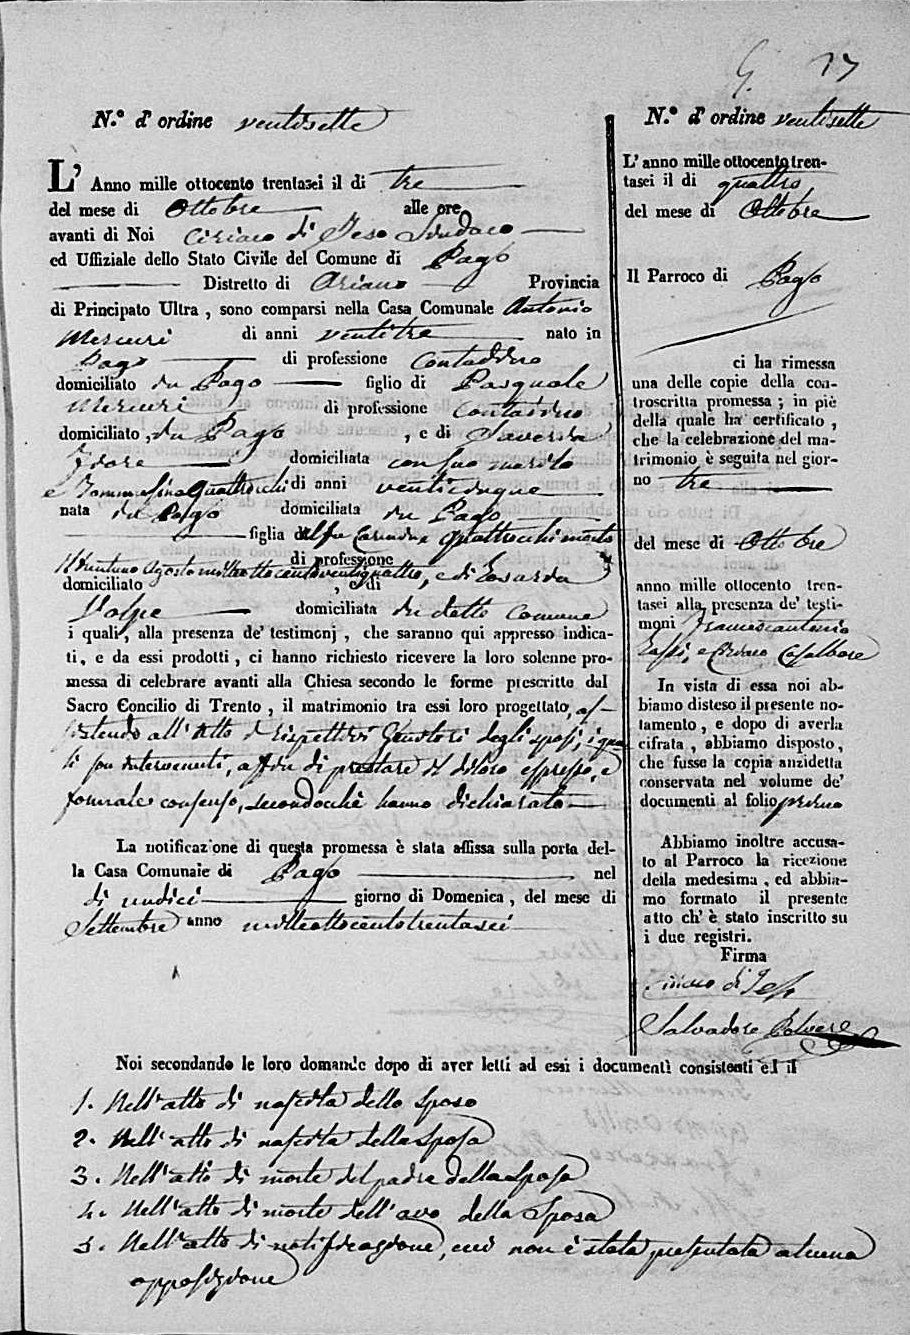 17
N.º d' ordine ventisette
L' Anno mille ottocento trentasei il di tre
del mese di Ottobre alle ore
avanti di Noi Ciriaco di Jeso Sindaco
ed Uffiziale dello Stato Civile del Comune di Pago
Distretto di Ariano Provincia
di Principato Ultra , sono comparsi nella Casa Comunale Antonio
Mercuri di anni ventitre nato in
Pago di professione Contadino
domiciliato in Pago figlio di Pasquale
Mercuri di professione Contadino
domiciliato , in Pago , e di Saveria
Idore domiciliata con suo marito
e Tommasina Quattrocchi di anni venticinque
nata in Pago domiciliata in Pago
figlia del fu Quattrocchi morto
di professione
il ventuno Agosto milleottocentoventiquattro, e di
domiciliato , e di
Volpe domiciliata in detto Comune
i quali, alla presenza de' testimonj , che saranno qui appresso indica-
ti, e da essi prodotti , ci hanno richiesto ricevere la loro solenne pro-
messa di celebrare avanti alla Chiesa secondo le forme prescritte dal
Sacro Concilio di Trento , il matrimonio tra essi loro progettato, as-
sistendo all'Atto i rispettivi Genitori degli sposi, i qua
li son intervenuti, affin di prestare il di loro espresso, e
formale consenso, secondocchè hanno dichiarato
La notificazione di questa promessa è stata affissa sulla porta del-
la Casa Comunale di Pago nel
di undici giorno di Domenica , del mese di
Settembre anno milleottocentotrentasei
N.º d' ordine ventisette
L' anno mille ottocento tren-
tasei il di quattro
del mese di Ottobre
Il Parroco di Pago
ci ha rimessa
una delle copie della con-
troscritta promessa ; in piè
della quale ha certificato ,
che la celebrazione del ma-
trimonio è seguita nel gior-
no tre
del mese di Ottobre
anno mille ottocento tren-
tasei alla presenza de' testi-
moni Francescantonio
e Ciriaco Casalbore
In vista di essa noi ab-
biamo disteso il presente no-
tamento , e dopo di averla
cifrata , abbiamo disposto ,
che fusse la copia anzidetta
conservata nel volume de'
documenti al folio primo
Abbiamo inoltre accusa-
to al Parroco la ricezione
della medesima , ed abbia-
mo formato il presente
atto ch' è stato inscritto su
i due registri.
Firma
Ciriaco di Jeso
Salvadore Polvere
Noi secondando le loro domande dopo di aver letti ad essi i documenti consistenti
1. Nell'atto di nascita dello sposo
2. Nell'atto di nascita della sposa
3. Nell'atto di morte del padre della sposa
4. Nell'atto di morte dell'avo della sposa
5. Nell'atto di notificazione, cui non è stata presentata alcuna
opposizione